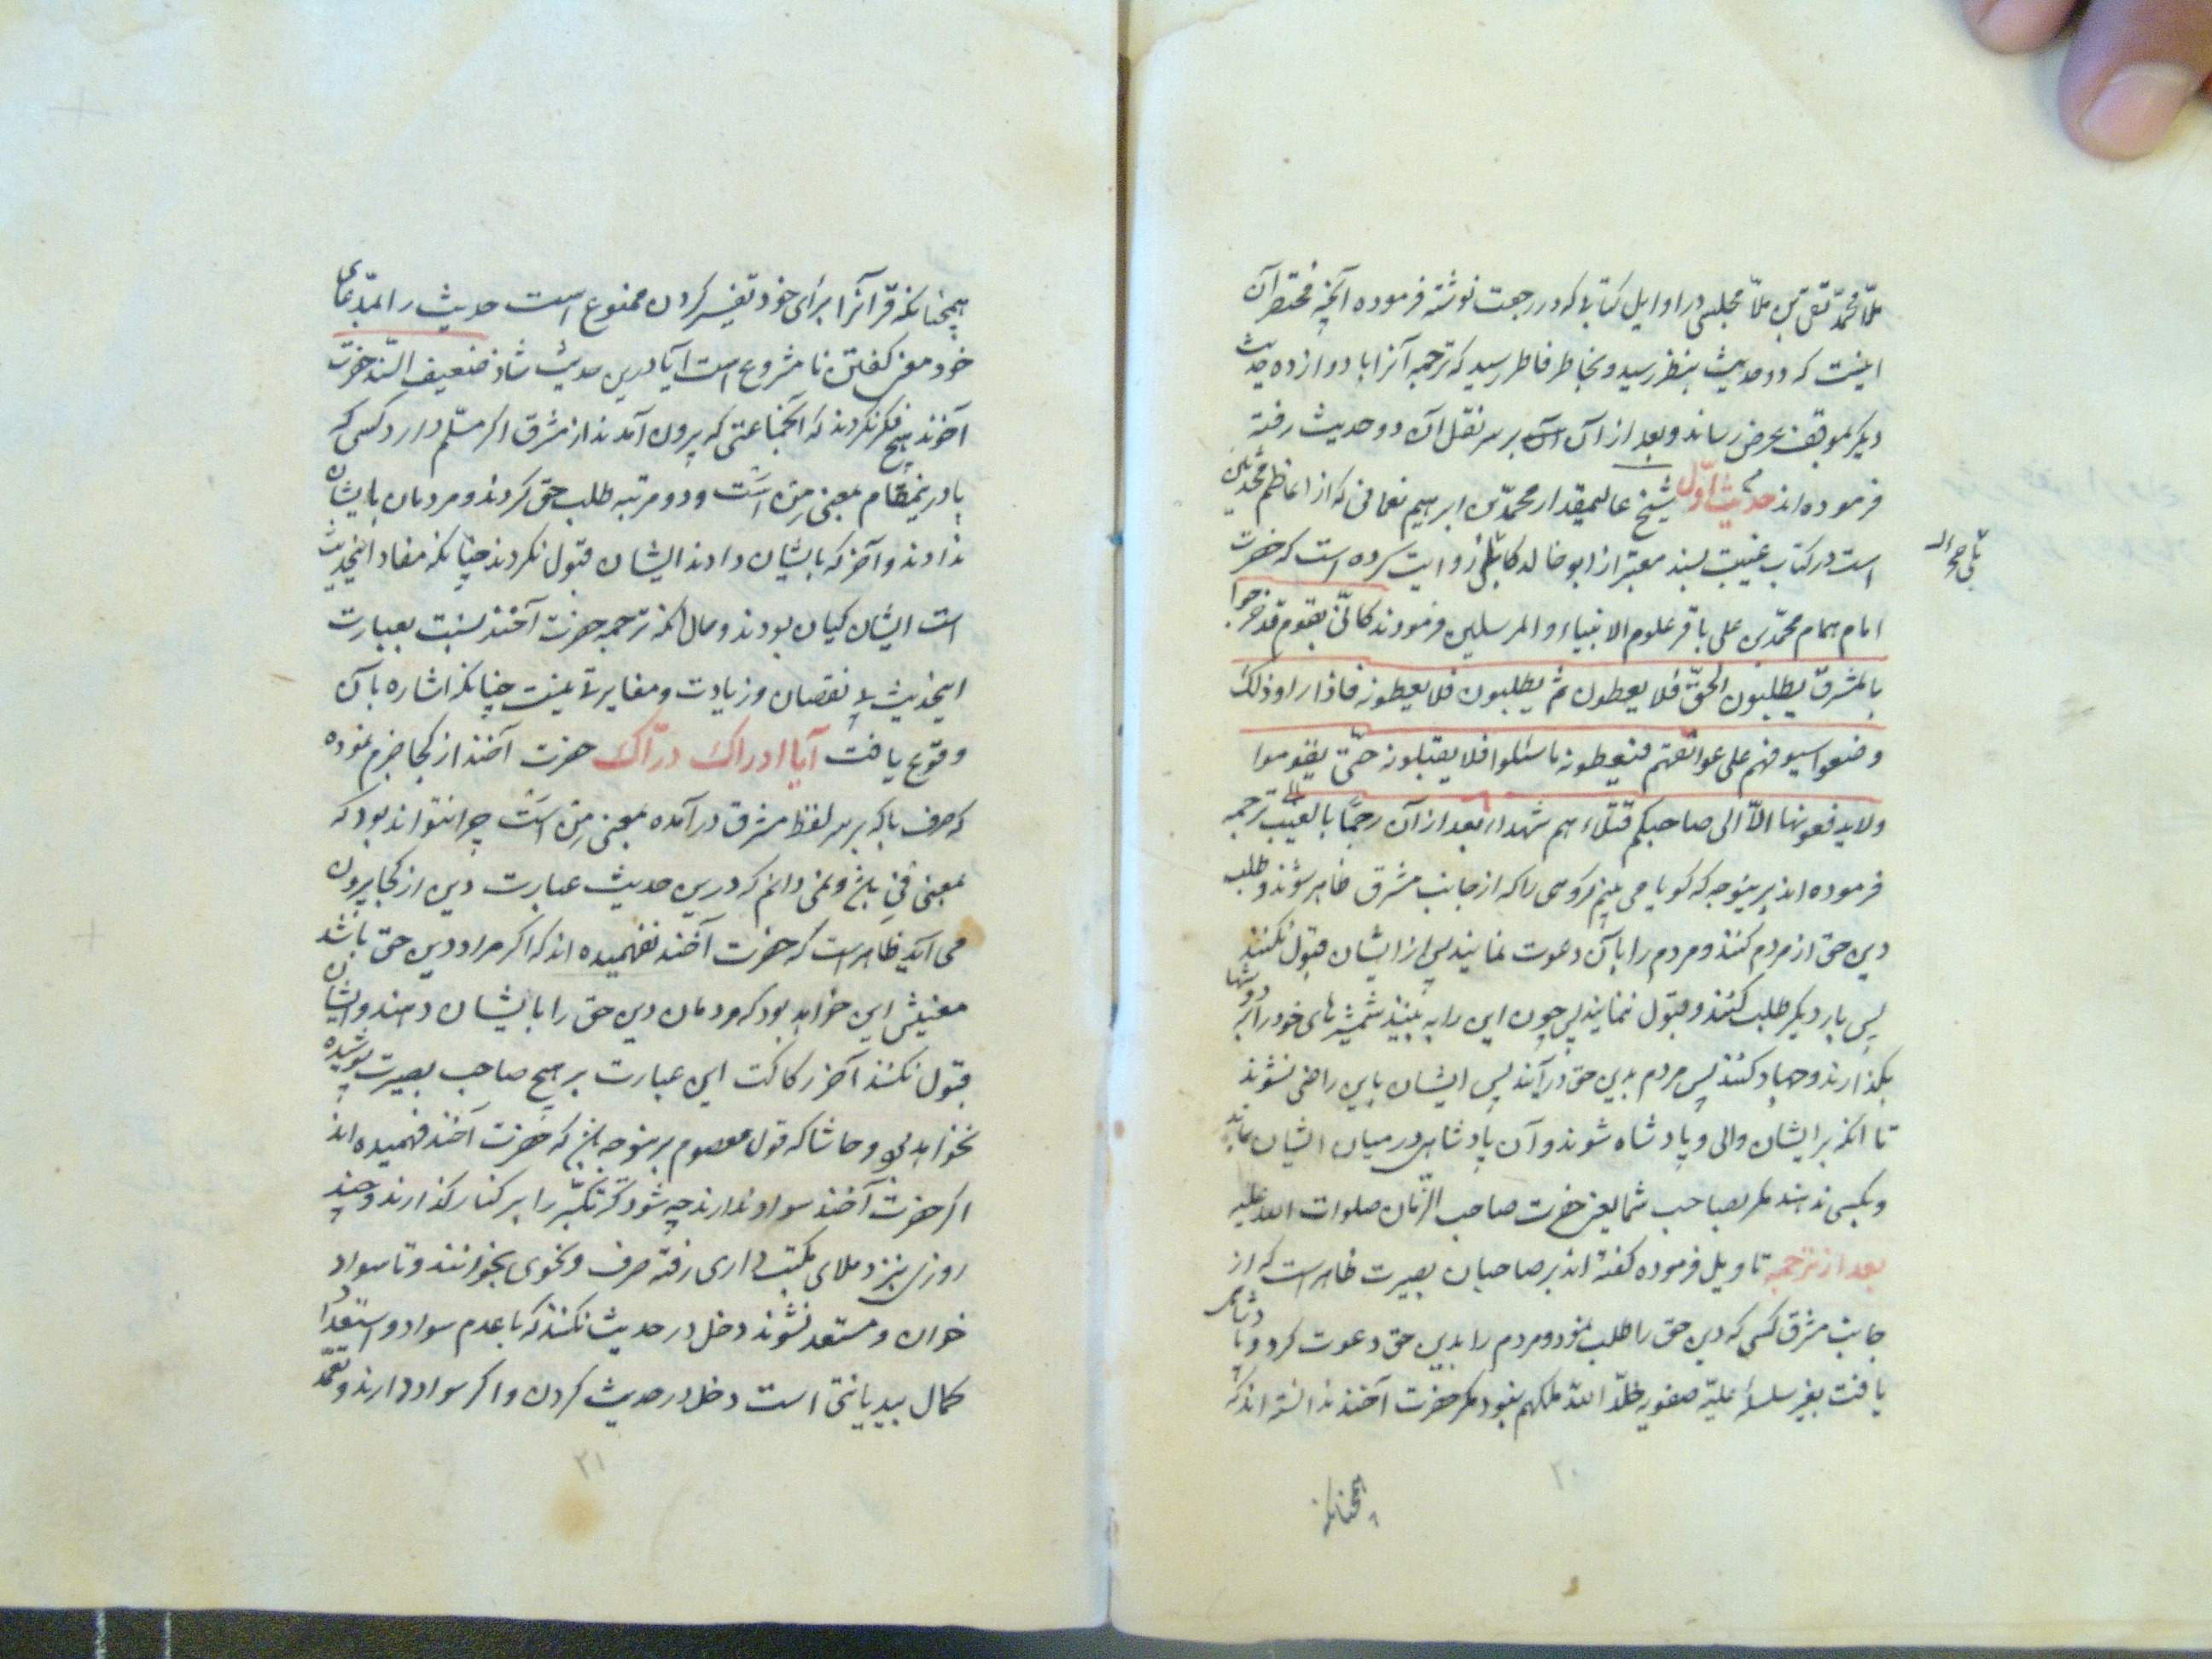 ملّا محمّد تقی بن ملّا مجلسی در اوایل کتابی که در رجعت نوشته فرموده آنچه مختصر آن
اینست که دو حدیث بنظر رسید و بخاطر فاطر رسید که ترجمه آنرا با دوازده حدیث
دیگر بموقف عرض رساند و بعد از آن بر سر نقل آن دو حدیث رفته
فرموده اند حدیث اوّل شیخ عالیمقدار محمّد بن ابرهیم نعمانی که از اعاظم محدّثین
است در کتاب غیبت بسند معتبر از ابو خالد کابلی روایت کرده است که حضرت
امام همام محمّد بن علی باقر علوم الانبیاء و المرسلین فرمودند کانّی بقوم قد خرجوا
بالمشرق یطلبون الحقّ فلا یعطون ثم یطلبون فلا یعطونه فاذا راوا ذلک
وضعوا سیوفهم علی عواتقهم فیعطونه ما سئلوا فلا یقبلونه حتّی یقوموا
ولا یدفعونها الّا الی صاحبکم قتلاءهم شهداء بعد از آن رجما بالغیب ترجمه
فرموده اند برینوجه که گویا می بینم گروهی را که از جانب مشرق ظاهر شوند و طلب
دین حق از مردم کنند و مردم را بآن دعوت نمایند پس از ایشان قبول نکنند
پس بار دیگر طلب کنند و قبول ننمایند پس چون این را به بینند شمشیرهای خود را بر دوشها
بگذارند و جهاد کنند پس مردم بدین حق درآیند پس ایشان باین راضی نشوند
تا آنکه بر ایشان والی و پادشاه شوند و آن پادشاهی در میان ایشان بماند
و بکسی ندهند مگر بصاحب شما یعنی حضرت صاحب الزّمان صلوات الله علیه
بعد از ترجمه تاویل فرموده گفته اند بر صاحبان بصیرت ظاهر است که از
جانب مشرق کسی که دین حق را طلب نمود و مردم را بدین حق دعوت کرد و پادشاهی
یافت بغیر سلسلهٔ علیّه صفویه خلّد الله ملکهم نبود مگر حضرت آخند ندانسته اند که
همچنانکه
۲۰
همچنانکه قرآنرا برای خود تفسیر کردن ممنوع است حدیث را بمدّعای
خود معنی گفتن نامشروع است آیا درین حدیث شاذ ضعیف السّند حضرت
آخوند هیچ فکر نکردند که آنجماعتی که برون آمدند از مشرق اگر مسلّم دارد کسی که
با درینمقام بمعنی مِن است و دو مرتبه طلب حق کردند و مردمان بایشان
ندادند و آخر که بایشان دادند ایشان قبول نکردند چنانکه مفاد اینحدیث
است ایشان کیان بودند و حال آنکه ترجمه حضرت آخند نسبت بعبارت
اینحدیث بی نقصان و زیادت و مغایرتی نیست چنانکه اشاره بآن
وقوع یافت آیا ادراک درّاک حضرت آخند از کجا جزم نموده
که حرف با که بر سر لفظ مشرق درآمده بمعنی مِن است چرا نتواند بود که
بمعنی فی باشد و نمی دانم که درین حدیث عبارت دین از کجا برون
می آید ظاهر است که حضرت آخند نفهمیده اند که اگر مراد دین حق باشد
معنیش این خواهد بود که مردمان دین حق را بایشان دهند و ایشان
قبول نکنند آخر رکاکت این عبارت بر هیچ صاحب بصیرت پوشیده
نخواهد بود و حاشا که قول معصوم برینوجه باشد که حضرت آخند فهمیده اند
اگر حضرت آخند سواد ندارند چه شود که تکبّر را بر کنار گذارند و چند
روزی بنزد ملای مکتب داری رفته صرف و نحوی بخوانند و تا سواد
خوان و مستعد نشوند دخل در حدیث نکنند که با عدم سواد و استعداد
کمال بیدیانتی است دخل در حدیث کردن و اگر سواد دارند و تعمّد
۲۱